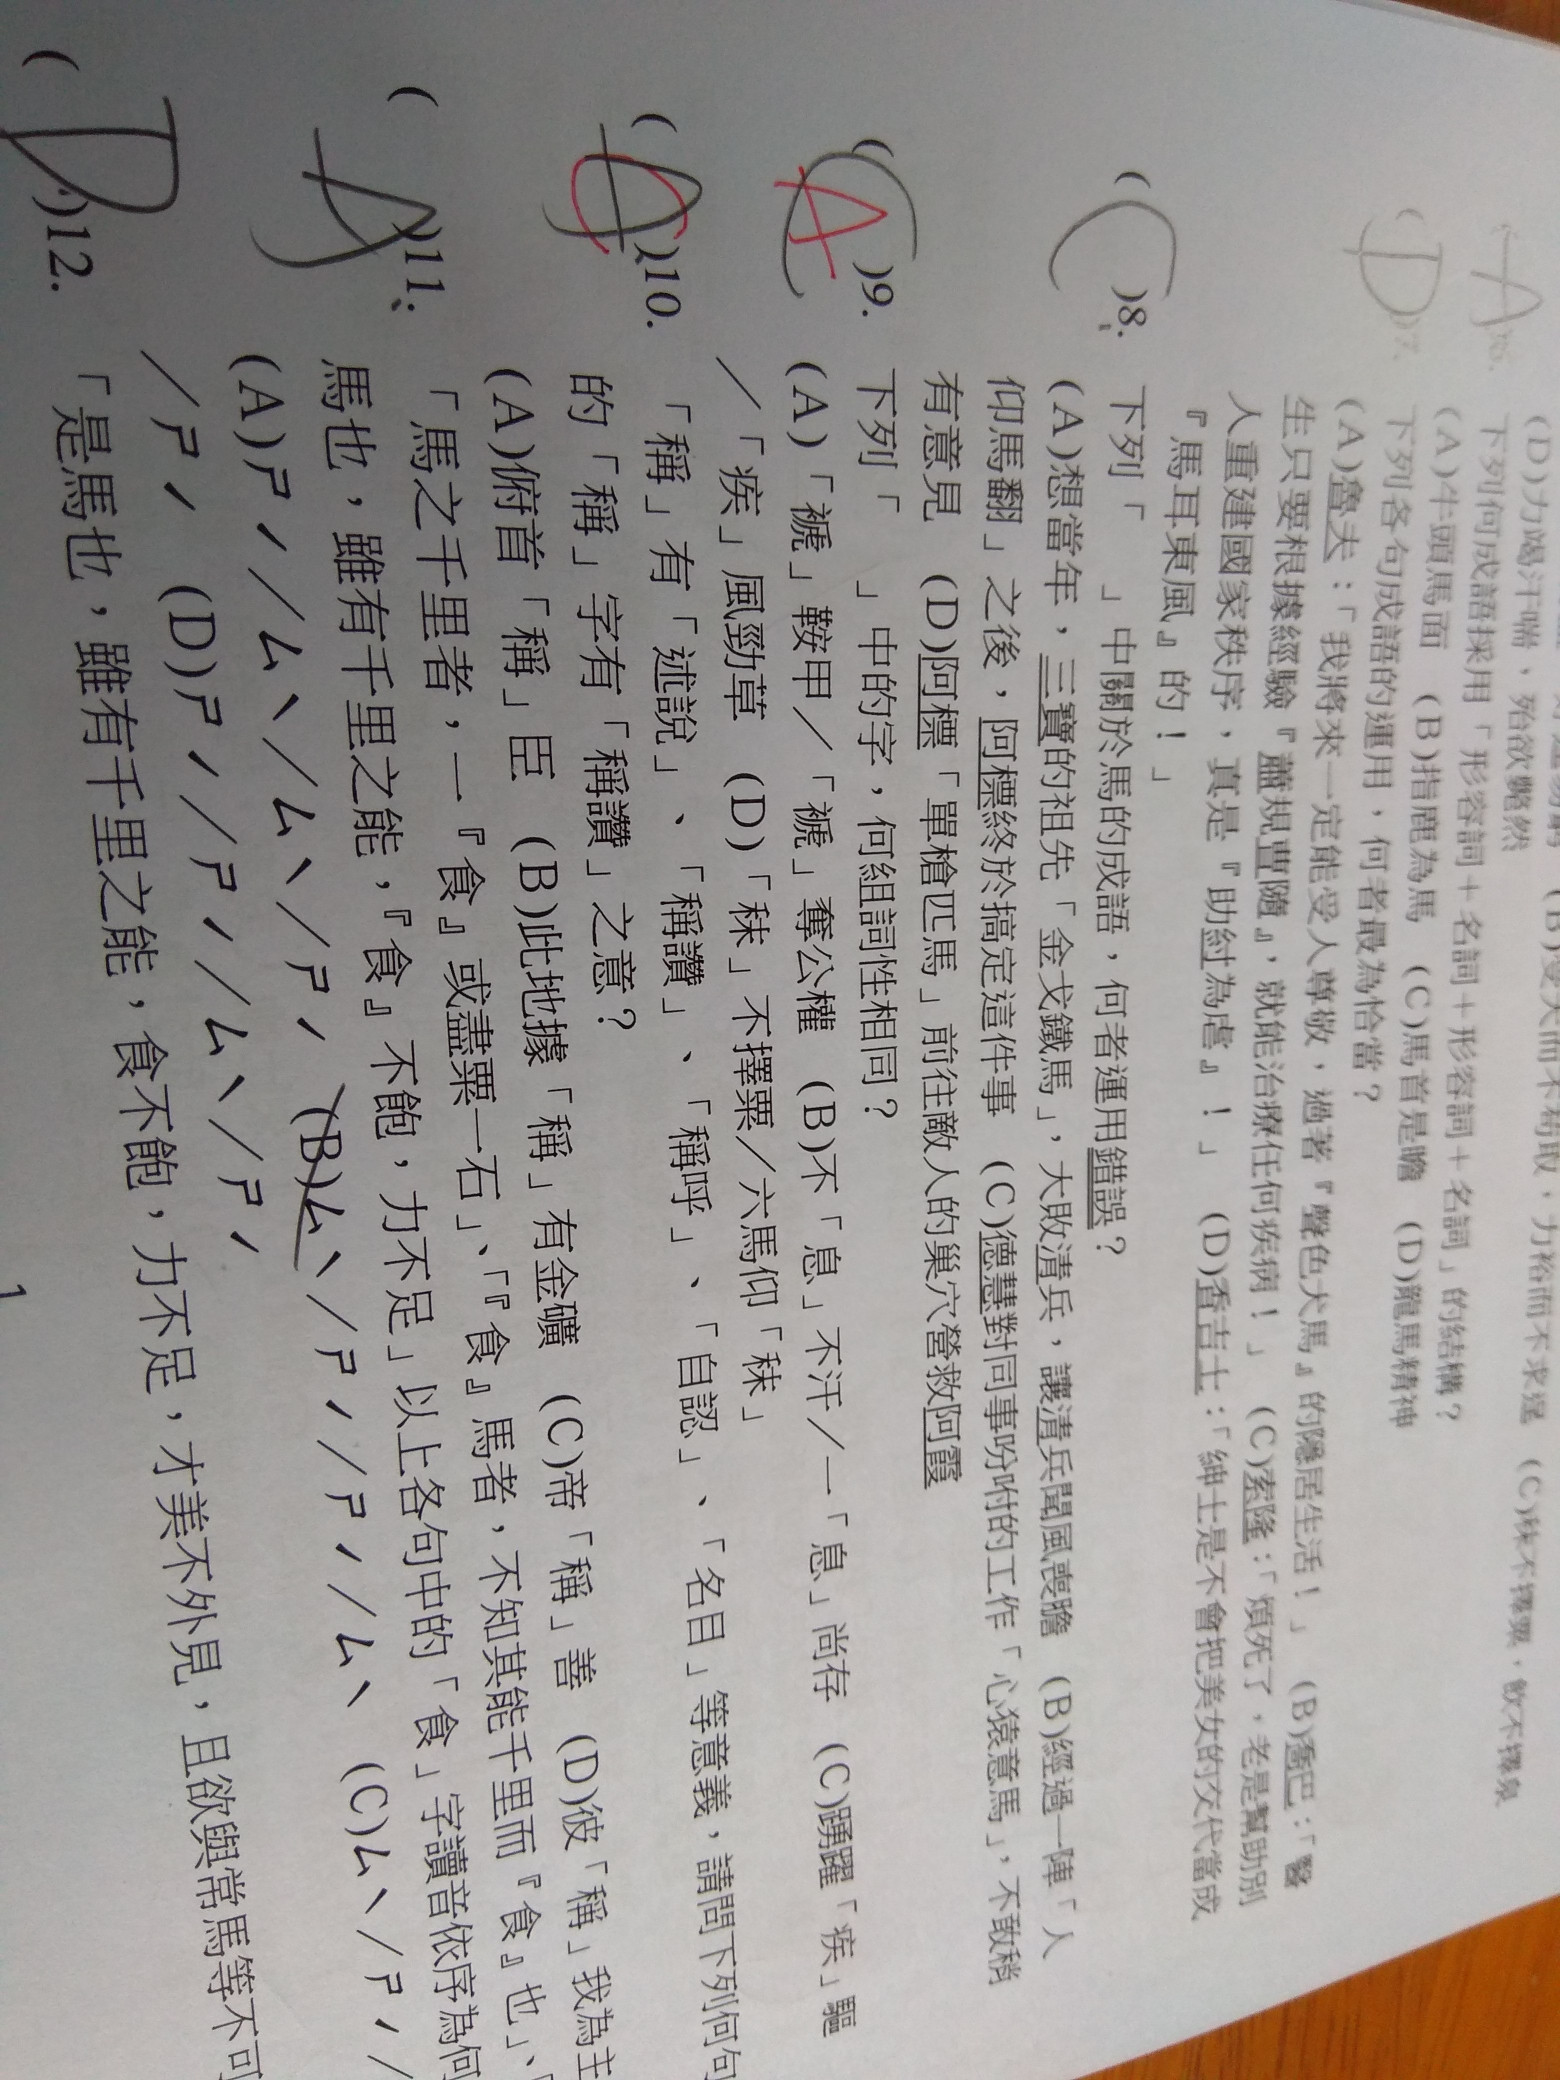 (D)力竭汗喘，殆欲斃然
下列何成語採用「形容詞＋名詞＋形容詞＋名詞」的結構？
(A)牛頭馬面 (B)指鹿為馬 (C)馬首是瞻 (D)龍馬精神
(D)7. 下列各句成語的運用，何者最為恰當？
(A)魯夫：「我將來一定能受人尊敬，過著『聲色犬馬』的隱居生活！」 (B)喬巴：「醫
生只要根據經驗『蕭規曹隨』，就能治療任何疾病！」 (C)索隆：「煩死了，老是幫助別
人重建國家秩序，真是『助紂為虐』！」 (D)香吉士：「紳士是不會把美女的交代當成
『馬耳東風』的！」
(C)8. 下列「　」中關於馬的成語，何者運用錯誤？
(A)想當年，三寶的祖先「金戈鐵馬」，大敗清兵，讓清兵聞風喪膽 (B)經過一陣「人
仰馬翻」之後，阿標終於搞定這件事 (C)德慧對同事吩咐的工作「心猿意馬」，不敢稍
有意見 (D)阿標「單槍匹馬」前往敵人的巢穴營救阿霞
(A)9. 下列「　」中的字，何組詞性相同？
(A)「褫」鞍甲／「褫」奪公權 (B)不「息」不汗／一「息」尚存 (C)踴躍「疾」驅
／「疾」風勁草 (D)「秣」不擇粟／六馬仰「秣」
10. 「稱」有「述說」、「稱讚」、「稱呼」、「自認」、「名目」等意義，請問下列何句
的「稱」字有「稱讚」之意？
(A)俯首「稱」臣 (B)此地據「稱」有金礦 (C)帝「稱」善 (D)彼「稱」我為主
(A)11. 「馬之千里者，一『食』或盡粟一石」、「『食』馬者，不知其能千里而『食』也」、「
馬也，雖有千里之能，『食』不飽，力不足」以上各句中的「食」字讀音依序為何
(A)ㄕˊ／ㄙˋ／ㄙˋ／ㄕˊ (B)ㄙˋ／ㄕˊ／ㄕˊ／ㄙˋ (C)ㄙˋ／ㄕˊ／
／ㄕˊ (D)ㄕˊ／ㄕˊ／ㄙˋ／ㄕˊ
(D)12. 「是馬也，雖有千里之能，食不飽，力不足，才美不外見，且欲與常馬等不可
1